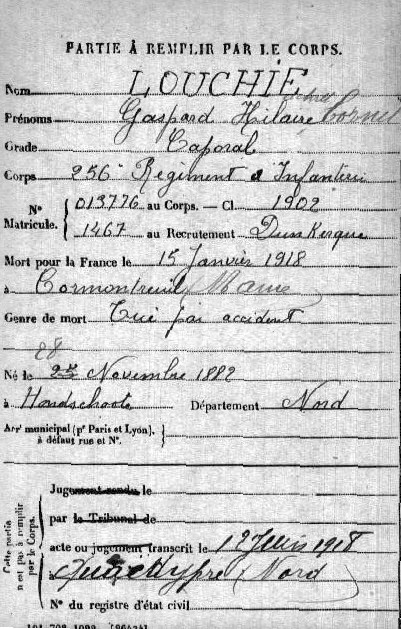 PARTIE À REMPLIR PAR LE CORPS.
Nom LOUCHIE
Prénoms Gaspard Hilaire Cornil
Grade Caporal
Corps 256e Régiment d'Infanterie
N° Matricule. 013776 au Corps. — Cl. 1902
1467 au Recrutement Dunkerque
Mort pour la France le 15 Janvier 1918
à Cormontreuil Marne
Genre de mort Tué par accident
28
Né le 25 Novembre 1882
à Hondschoote Département Nord
Arrt municipal (pr Paris et Lyon),
à défaut rue et N°.
Cette partie n'est pas à remplir par le Corps.
Jugement rendu le
par le Tribunal de
acte ou jugement transcrit le 12 Juin 1918
à Quaedypre (Nord)
N° du registre d'état civil